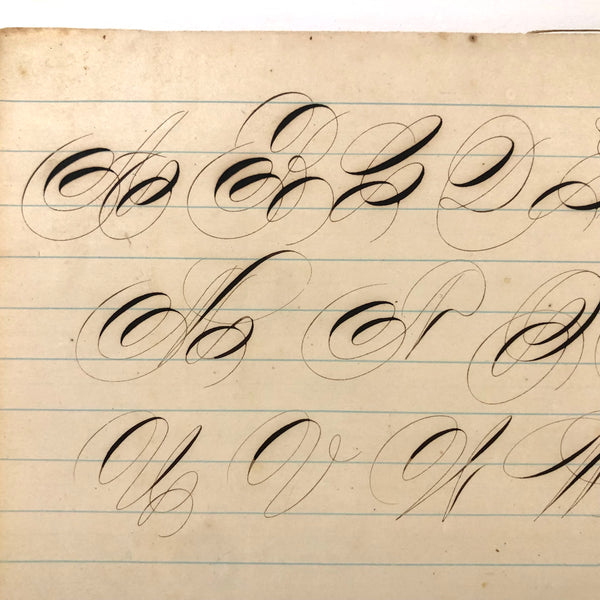 A B C D E
M N O
U V W X